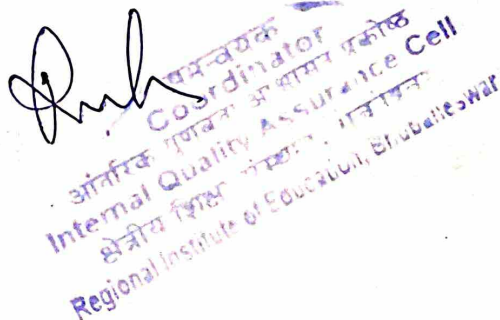 समन्वयक
Coordinator
आंतरिक गुणवत्ता आश्वासन प्रकोष्ठ
Internal Quality Assurance Cell
क्षेत्रीय शिक्षा संस्थान, भुवनेश्वर
Regional Institute of Education, Bhubaneswar